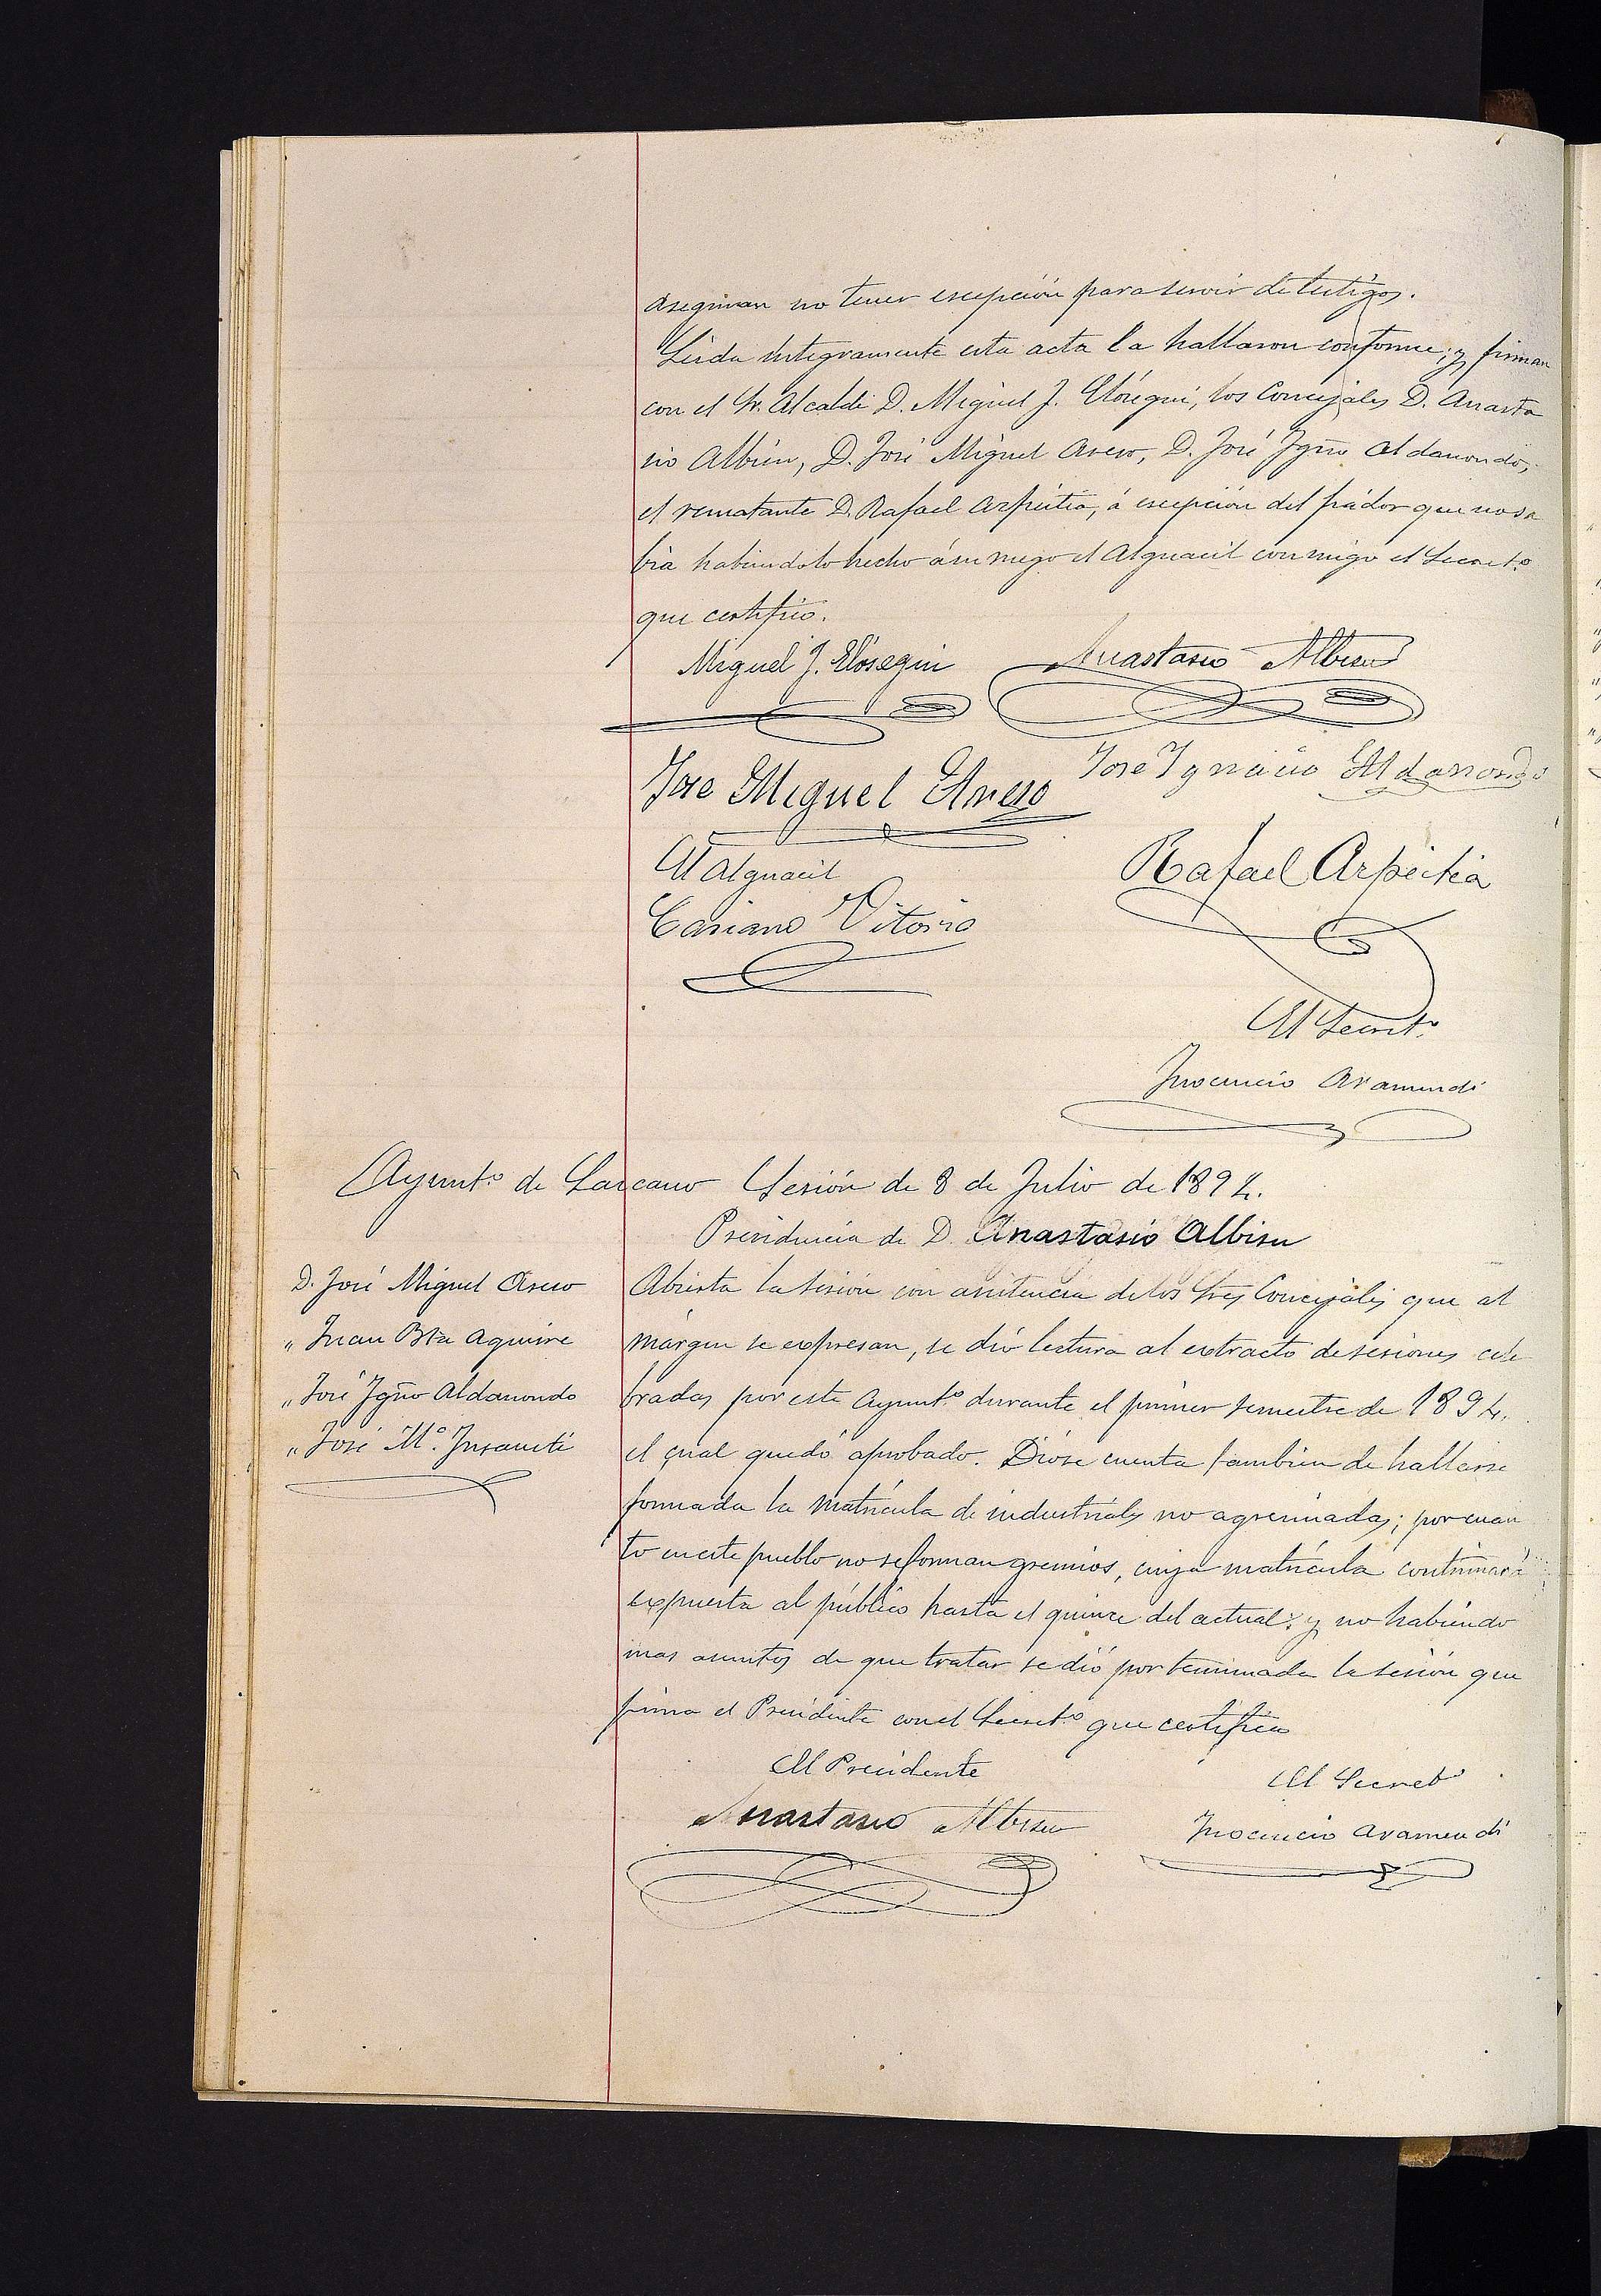 aseguran no tener escepción para servir de testigos.
Leida integramente esta acta la hallaron conforme; y firman
con el Sr. Alcalde D. Miguel J. Elósegui, los Concejales D. Anasta
sio Albisu, D. José Miguel Aseso, D. José Ygño Aldanondo,
el rematante D. Rafael Arpeitia, á escepción del fiador que no sa
bia habiendolo hecho á su ruego el Alguacil conmigo el Secretº
que certifico.
Miguel J. Elósegui Anastasio Albisu
Jose Miguel José Ygnacio Aldanondo
El Alguacil Rafael Arpeitia
Casiano Vitoria
El Secretº
Inocencio Aramendi
Ayuntº de Lazcano Sesión de 8 de Julio de 1894.
Presidencia de D. Anastasio Albisu
D. José Miguel Aseso
" Juan Bta Aguirre
" José Ygño Aldanondo
" José Mº. Insausti
Abierta la sesión con asistencia de los Sres Concejales que al
márgen se expresan, se dió lectura al extracto de sesiones cele
bradas por este Ayuntº durante el primer semestre de 1894.
el cual quedó aprobado. Dióse cuenta tambien de hallarse
formada la matrícula de industriales no agremiadas; por cuan
to en este pueblo no se forman gremios, cuya matrícula continuará
expuesta al público hasta el quince del actual: y no habiendo
mas asuntos de que tratar se dió por terminada la sesión que
firma el Presidente con el Secretº que certifica
El Presidente El Secretº
Anastasio Albisu Inocencio Aramendi